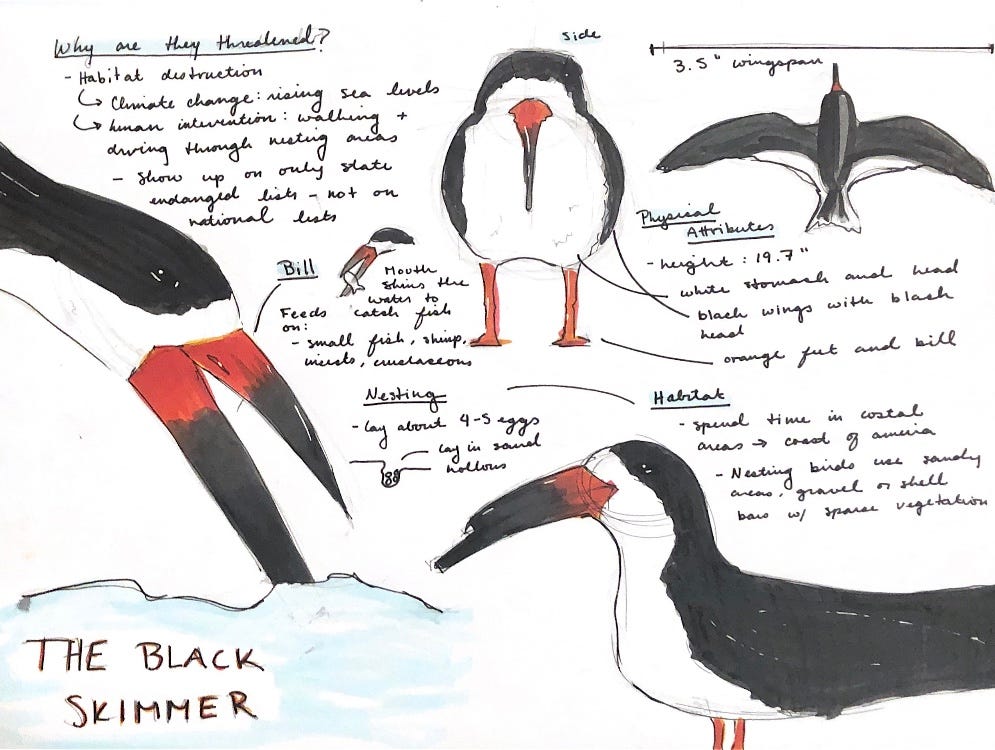 Why are they threatened?
- Habitat destruction
↳ Climate change: rising sea levels
↳ human intervention: walking +
driving through nesting areas
- show up on only state
endanged lists - not on
national lists
side
3.5" wingspan
Physical
Attributes
- height: 19.7"
white stomach and head
black wings with black
head
orange feet and bill
Bill
Mouth
skims the
water to
catch fish
Feeds
on:
- small fish, shimp,
insects, crustaceous
Nesting
- lay about 4-5 eggs
lay in sand
hollows
Habitat
- spend time in costal
areas → coast of america
- Nesting birds use sandy
areas, gravel or shell
bars w/ sparse vegetation
THE BLACK
SKIMMER